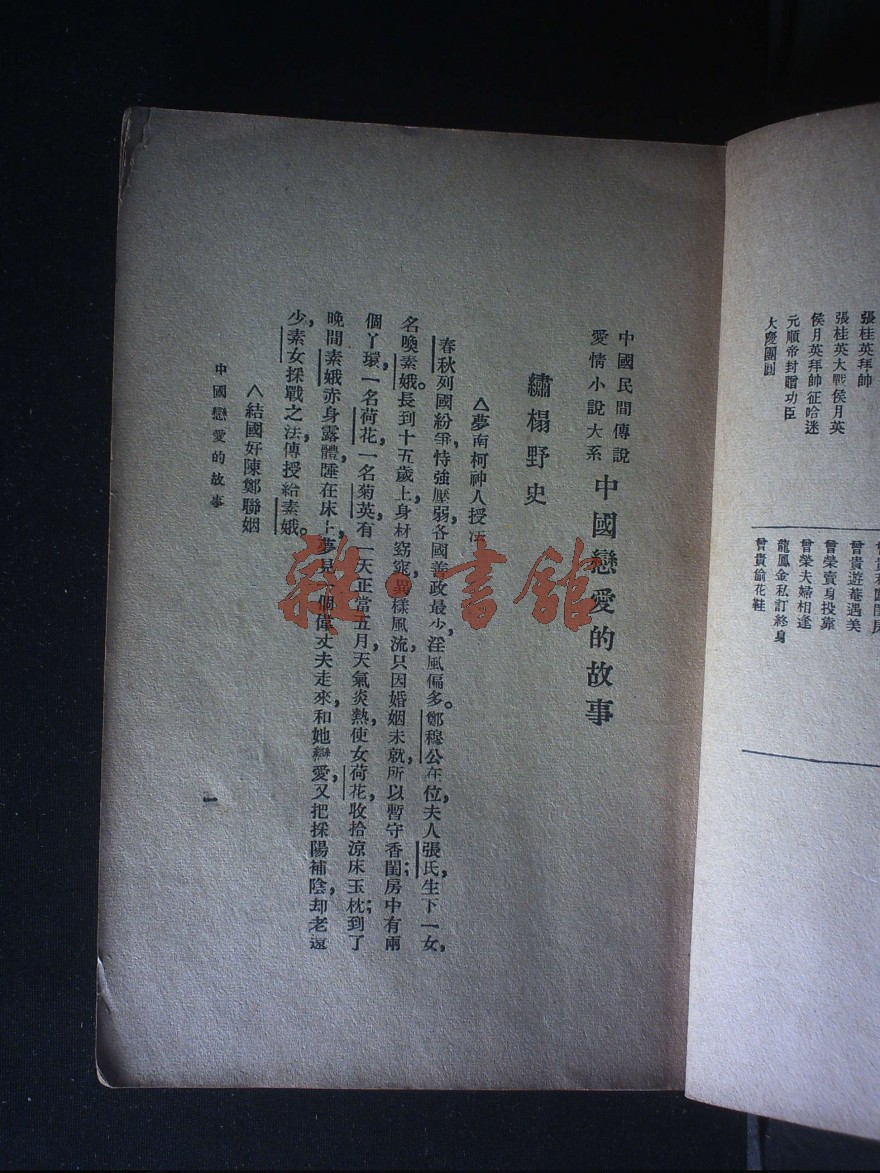 張桂英拜帥
張桂英大戰侯月英
侯月英拜帥征哈迷
元順帝封贈功臣
大慶團圓
曾貴遊菴遇美
曾榮賣身投靠
曾榮夫婦相逢
龍鳳金私訂終身
曾貴偷花鞋
中國民間傳說
愛情小說大系
中國戀愛的故事
繡榻野史
△夢南柯神人授法
春秋列國紛爭，恃強壓弱，各國善政最少，淫風偏多。鄭穆公在位，夫人張氏，生下一女，
名喚素娥。長到十五歲上，身材窈窕，異樣風流，只因婚姻未就，所以暫守香閨；房中有兩
個丫環，一名荷花，一名菊英，有一天，正當五月，天氣炎熱，使女荷花，收拾涼床玉枕；到了
晚間，素娥赤身露體，睡在床上，夢見一個偉丈夫走來，和她戀愛，又把採陽補陰，却老還
少，素女採戰之法，傳授給素娥。
△結國好陳鄭聯姻
中國戀愛的故事
一
雜·書館